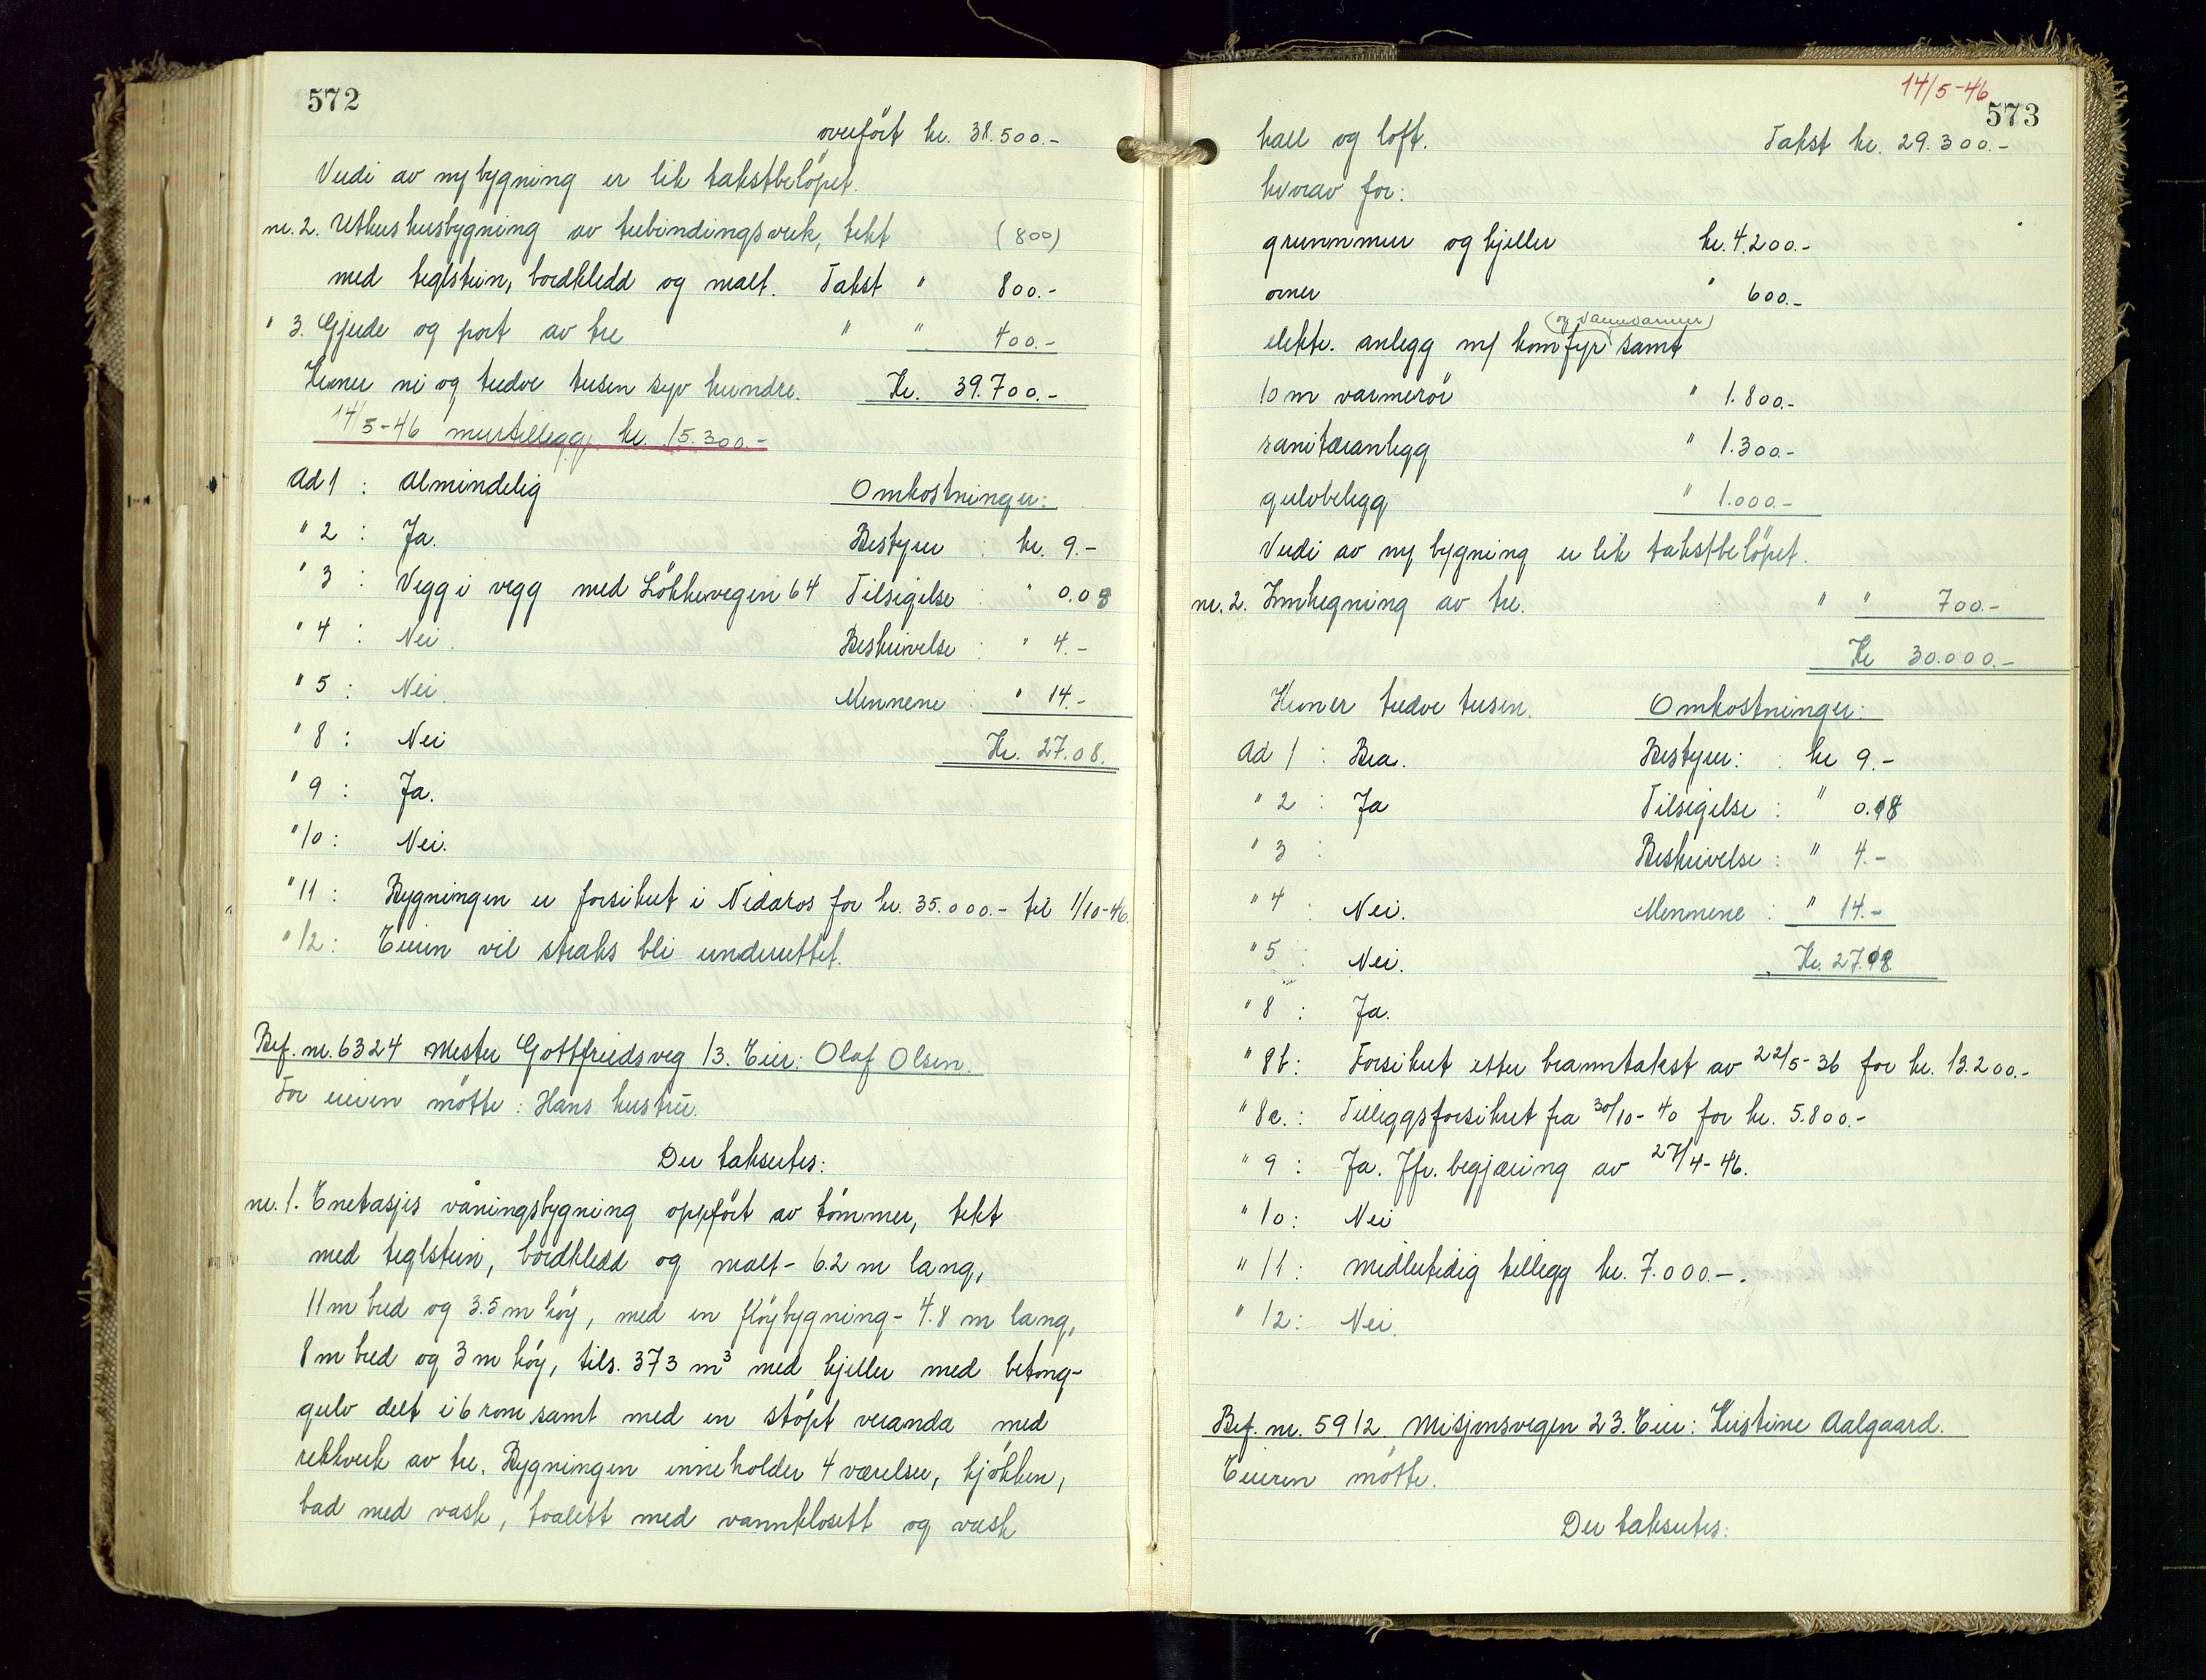 572
overført kr. 38.500.-
Verdi av ny bygning er lik takstbeløpet.
nr. 2. Uthushusbygning av trebindingsverk, tekt (800)
med teglstein, bordkledd og malt. Takst " 800.-
" 3. Gjerde og port av tre " " 400.-
Kroner ni og tredve tusen syv hundre. Kr. 39.700.-
14/5-46 murtillegg kr. 15.300.-
Ad 1 : Almindelig Omkostninger:
" 2 : Ja. Bestyrer : kr. 9.-
" 3 : Vegg i vegg med Løkkevegen 64 Tilsigelse : " 0.08
" 4 : Nei. Beskrivelse : " 4.-
" 5 : Nei. Mennene : " 14.-
" 8 : Nei Kr. 27.08.
" 9 : Ja.
" 10 : Nei.
" 11 : Bygningen er forsikret i Nidaros for kr. 35.000.- til 1/10-46.
" 12 : Eieren vil straks bli underrettet.
Bef. nr. 6324 Mester Gottfriedsveg 13. Eier: Olaf Olsen.
For eieren møtte: Hans hustru.
Der takseres:
nr. 1. Enetasjes våningsbygning oppført av tømmer, tekt
med teglstein, bordkledd og malt - 6.2 m lang,
11 m bred og 3.5 m høy, med en fløybygning - 4.8 m lang,
8 m bred og 3 m høy, tils. 373 m³ med kjeller med betong-
gulv delt i 6 rom samt med en støpt veranda med
rekkverk av tre. Bygningen inneholder 4 værelser, kjøkken,
bad med vask, toalett med vannklosett og vask
14/5-46
573
hall og loft. Takst kr. 29.300.-
hvorav for:
grunnmur og kjeller kr. 4.200.-
ovner " 600.-
(og varmvanner)
elektr. anlegg m/ komfyr samt
10 m varmerør " 1.800.-
sanitæranlegg " 1.300.-
gulvbelegg " 1.000.-
Verdi av ny bygning er lik takstbeløpet.
nr. 2. Innhegning av tre. " " 700.-
Kr 30.000.-
Kroner tredve tusen. Omkostninger:
Ad 1 : Bra. Bestyrer: kr 9.-
" 2 : Ja Tilsigelse : " 0.18
" 3 : Beskrivelse : " 4.-
" 4 : Nei. Mennene : " 14.-
" 5 : Nei. Kr. 27.18
" 8 : Ja.
" 8b : Forsikret etter branntakst av 22/5-36 for kr. 13.200.-
" 8c. : Tilleggsforsikret fra 30/10-40 for kr. 5.800.-
" 9 : Ja. Jfr. begjæring av 27/4-46.
" 10 : Nei
" 11 : midlertidig tillegg kr. 7.000.-.
" 12 : Nei.
Bef. nr. 5912 Misjonsvegen 23. Eier: Kristine Aalgaard.
Eieren møtte.
Der takseres: